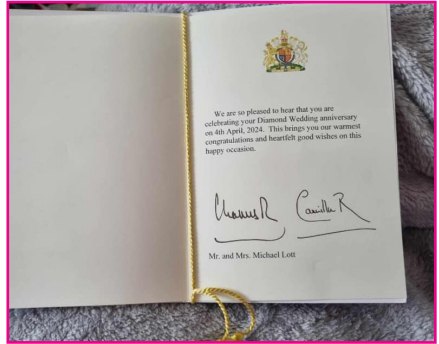 We are so pleased to hear that you are
celebrating your Diamond Wedding anniversary
on 4th April, 2024. This brings you our warmest
congratulations and heartfelt good wishes on this
happy occasion.
Charles R Camilla R
Mr. and Mrs. Michael Lott